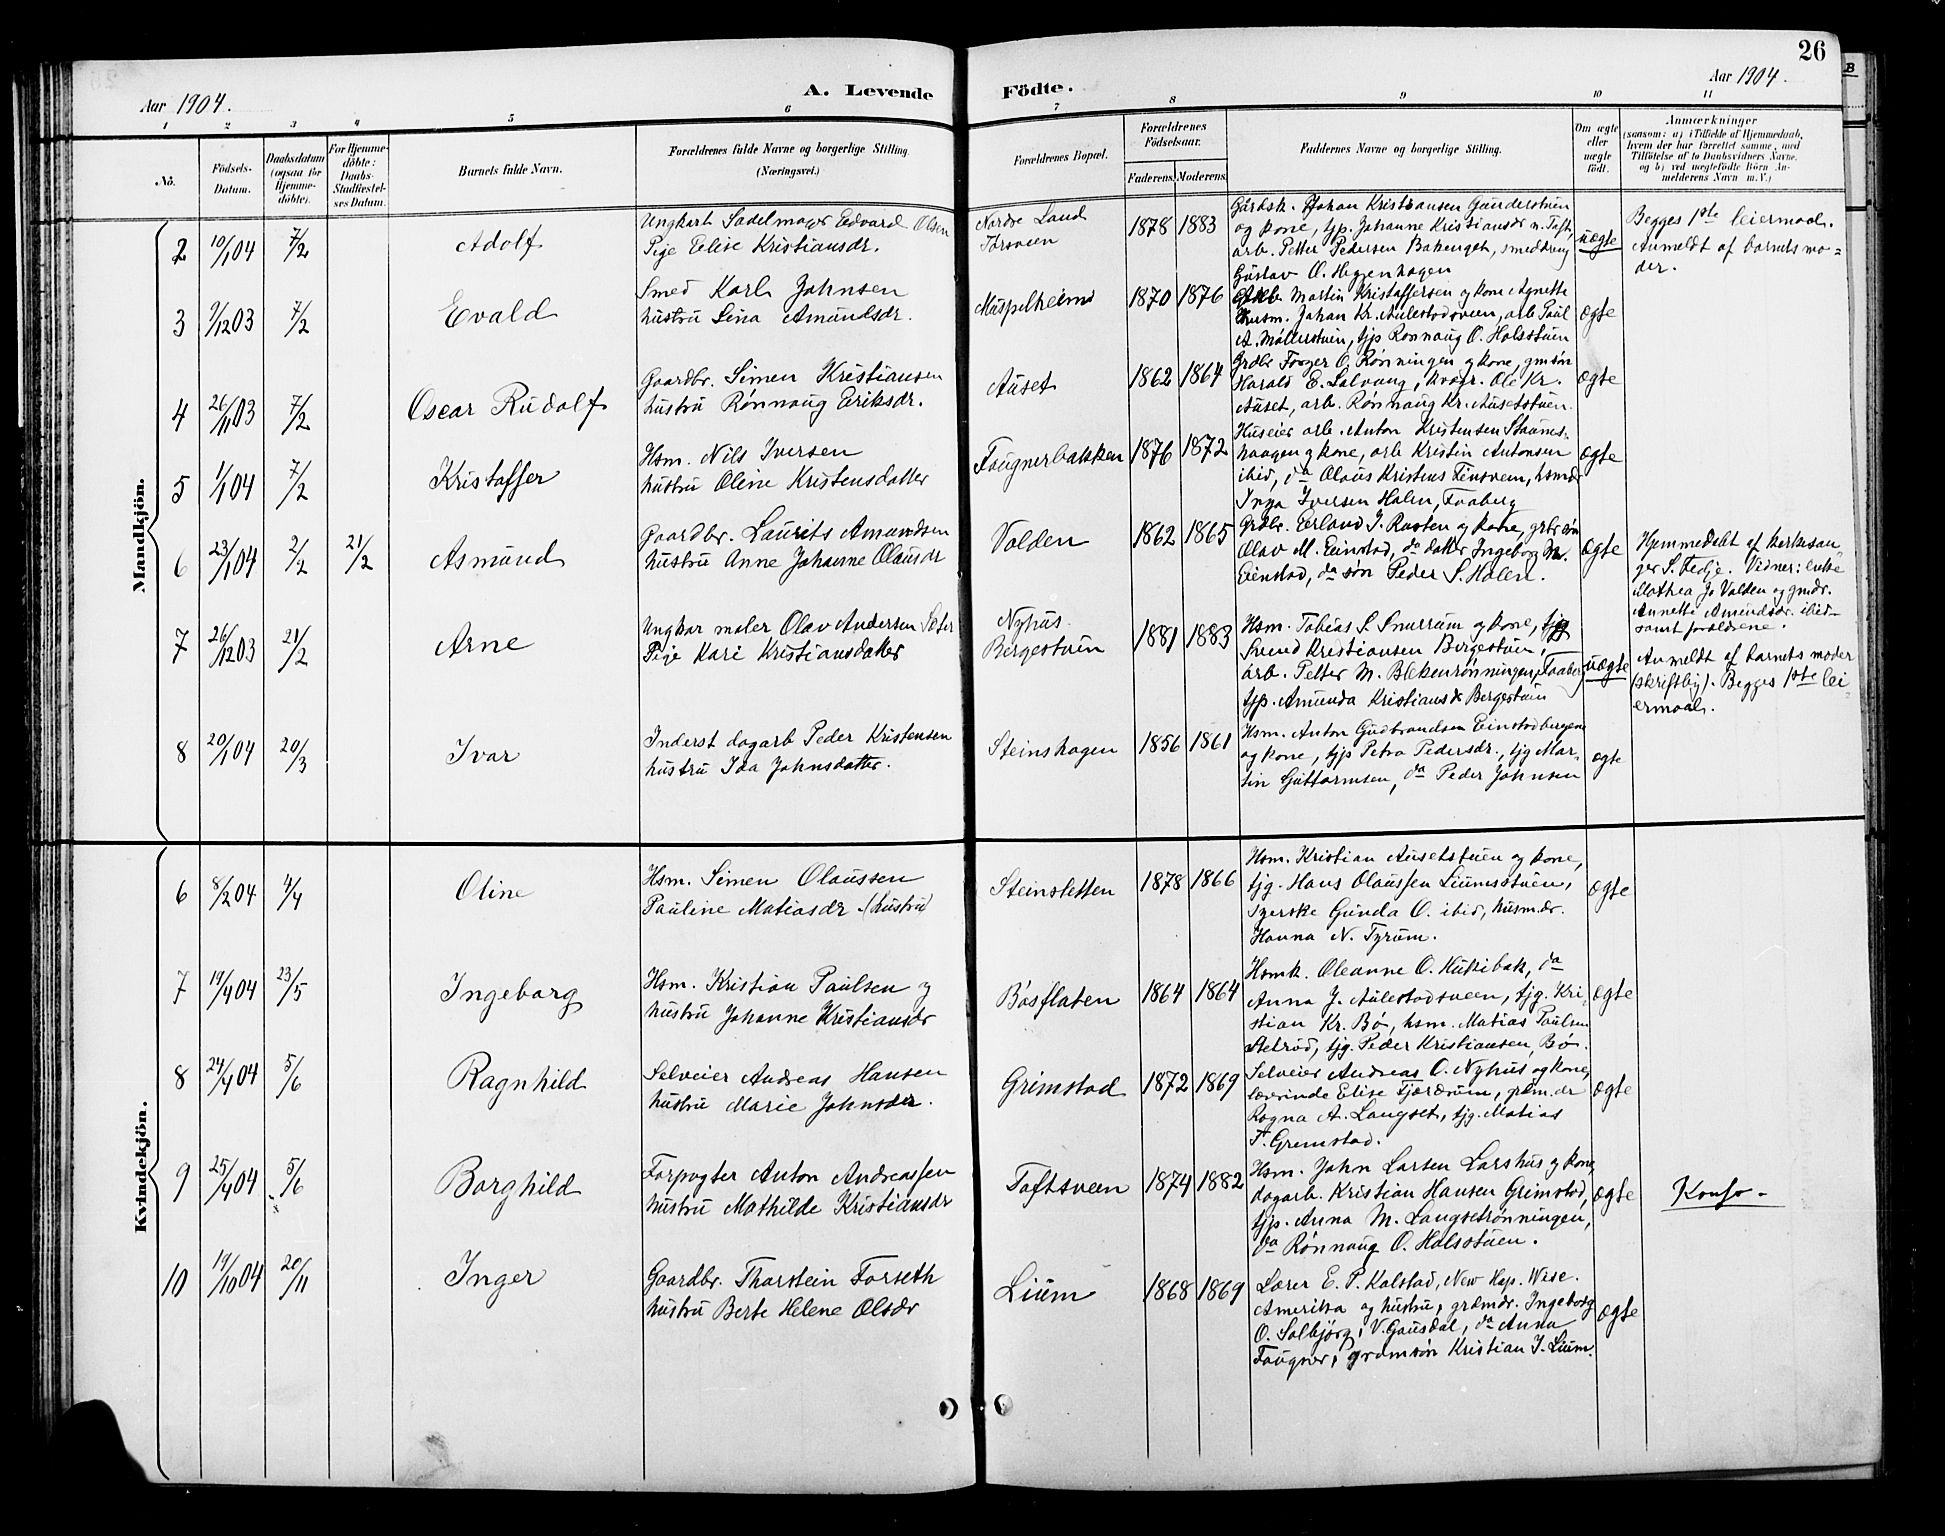 26
Aar 1904.
A. Levende
Födte.
Aar 1904.
B
1 2 3 4 5 6 7 8 9 10 11
No.
Födsels-
Datum.
Daabsdatum
(ogsaa for
Hjemme-
döbte).
For Hjemme-
döbte:
Daabs-
Stadfæstel-
ses Datum.
Barnets fulde Navn.
Forældrenes fulde Navne og borgerlige Stilling
(Næringsvei.)
Forældrenes Bopæl.
Forældrenes
Födselsaar.
Faderens.
Moderens.
Faddernes Navne og borgerlige Stilling.
Om ægte
eller
uægte
födt.
Anmærkninger
(saasom: a) i Tilfælde af Hjemmedaab,
hvem der har forrettet samme, med
Tilföielse af to Daabsvidners Navne,
og b) ved uægtefödte Börn An-
melderens Navn m. V.)
Mandkjön.
2 10/1 04 7/2
Adolf
Ungkarl Sadelmager Edvard Olsen
Pige Elise Kristiansdr.
Nordre Land
1878 1883
Gårdsk. Johan Kristiansen Gunderstuen
og kone, tjp. Johanne Kristiansdr n. Toft,
arb. Petter Pedersen Bakenget, smeddreng
Gustav O. Heggenhagen
uægte
Begges 1ste leiermaal.
Anmeldt af barnets mo-
der.
3 9/12 03 7/2
Evald
Smed Karl Johnsen
hustru Lina Amundsdr.
Muspelheim
1870 1876
Martin Kristoffersen og kone Agnette
husm. Johan Kr. Aulestadsveen, arb Paul
A. Møllerstuen, tjp Rønnaug O. Holsstuen
ægte
4 26/11 03 7/2
Oscar Rudolf
Gaardbr. Simen Kristiansen
hustru Rønnaug Eriksdr.
Auset
1862 1864
Grdbr Torger O. Rønningen og kone, gmsøn
Harald E. Solvang, Ole Kr.
Auset, arb. Rønnaug Kr. Ausetstuen.
ægte
5 1/1 04 7/2
Kristoffer
Hsm. Nils Iversen
hustru Oline Kristensdatter
Fougnerbakken
1876 1872
Huseier arb. Anton Kristensen
haagen og kone, arb Kristin Antonsen
ibid, da Olaus Kristens
Inga Iversen Holen, Faaberg
ægte
6 23/1 04 2/2 21/2
Asmund
Gaardbr. Laurits Amundsen
hustru Anne Johanne Olausdr
Volden
1862 1865
Grdbr. Erland J. Rasten og kone, grbr søn
Olav M. Einstad, da datter Ingeborg M.
Einstad, da søn Peder S. Holen.
ægte
Hjemmedøbt af kirkesan
ger S. Fedje. Vidner: enke
Mathea Jo Valden og gmdr.
Annette Amundsdr. ibid
samt forældrene.
7 26/12 03 21/2
Arne
Ungkar maler Olav Andersen Sæter
Pige Kari Kristiansdatter
Nyhus
Bergestuen
1881 1883
Hsm. Tobias S. Snurrum og kone, tjg
Svend Kristiansen Bergestuen,
arb. Petter M. Blekenrønningen, Faaberg
tjp. Amunda Kristiansdr Bergestuen
uægte
Anmeldt af barnets moder
(skriftlig). Begges 1ste lei
ermaal.
8 20/1 04 20/3
Ivar
Inderst dagarb Peder Kristensen
hustru Ida Johnsdatter.
Steinshagen
1856 1861
Hsm. Anton Gudbrandsen Einstadbergene
og kone, tjp Petra Pedersdr., tjg Mar-
tin Guttormsen, da Peder Johnsen
ægte
Kvindekjön.
6 8/2 04 4/4
Oline
Hsm. Simen Olaussen
Pauline Matiasdr (hustru)
Steinsletten
1878 1866
Hsm. Kristian Ausetstuen og kone,
tjg. Hans Olaussen Liumsstuen,
syerske Gunda O. ibid, husm.dr.
Hanna N. Tyrum.
ægte
7 19/4 04 23/5
Ingeborg
Hsm. Kristian Paulsen og
hustru Johanne Kristiansdr
Bøsflaten
1864 1864
Hsmk. Oleanne O. Kukibak, da
Anna J. Aulestadsveen, tjg. Kri-
stian Kr. Bø, hsm. Matias Paulsen
tjg. Peder Kristiansen, Bø.
ægte
8 24/4 04 5/6
Ragnhild
Selveier Andreas Hansen
hustru Marie Johnsdr.
Grimstad
1872 1869
Selveier Andreas O. Nyhus og kone,
lærerinde Elise Fjærdrum, grdm.dr
Ragna A. Langset, tjg. Matias
T. Gremstad.
ægte
9 25/4 04 5/6
Borghild
Forpagter Anton Andreassen
hustru Mathilde Kristiansdr
Toftsveen
1874 1882
Hsm. John Larsen Larshus og kone,
dagarb. Kristian Hansen Grimstad,
tjp. Anna M. Langsetrønningen,
da Rønnaug O. Holsstuen.
ægte
10 19/10 04 20/11
Inger
Gaardbr. Thorstein Forseth
hustru Berte Helene Olsdr
Lium
1868 1869
Lærer E. P. Kalstad, New Hop. Wise.
Amerika og hustru, grdmdr. Ingeborg
O. Solbjørg, V. Gausdal, da Anna
Fougner, grdmsøn Kristian J. Lium.
ægte